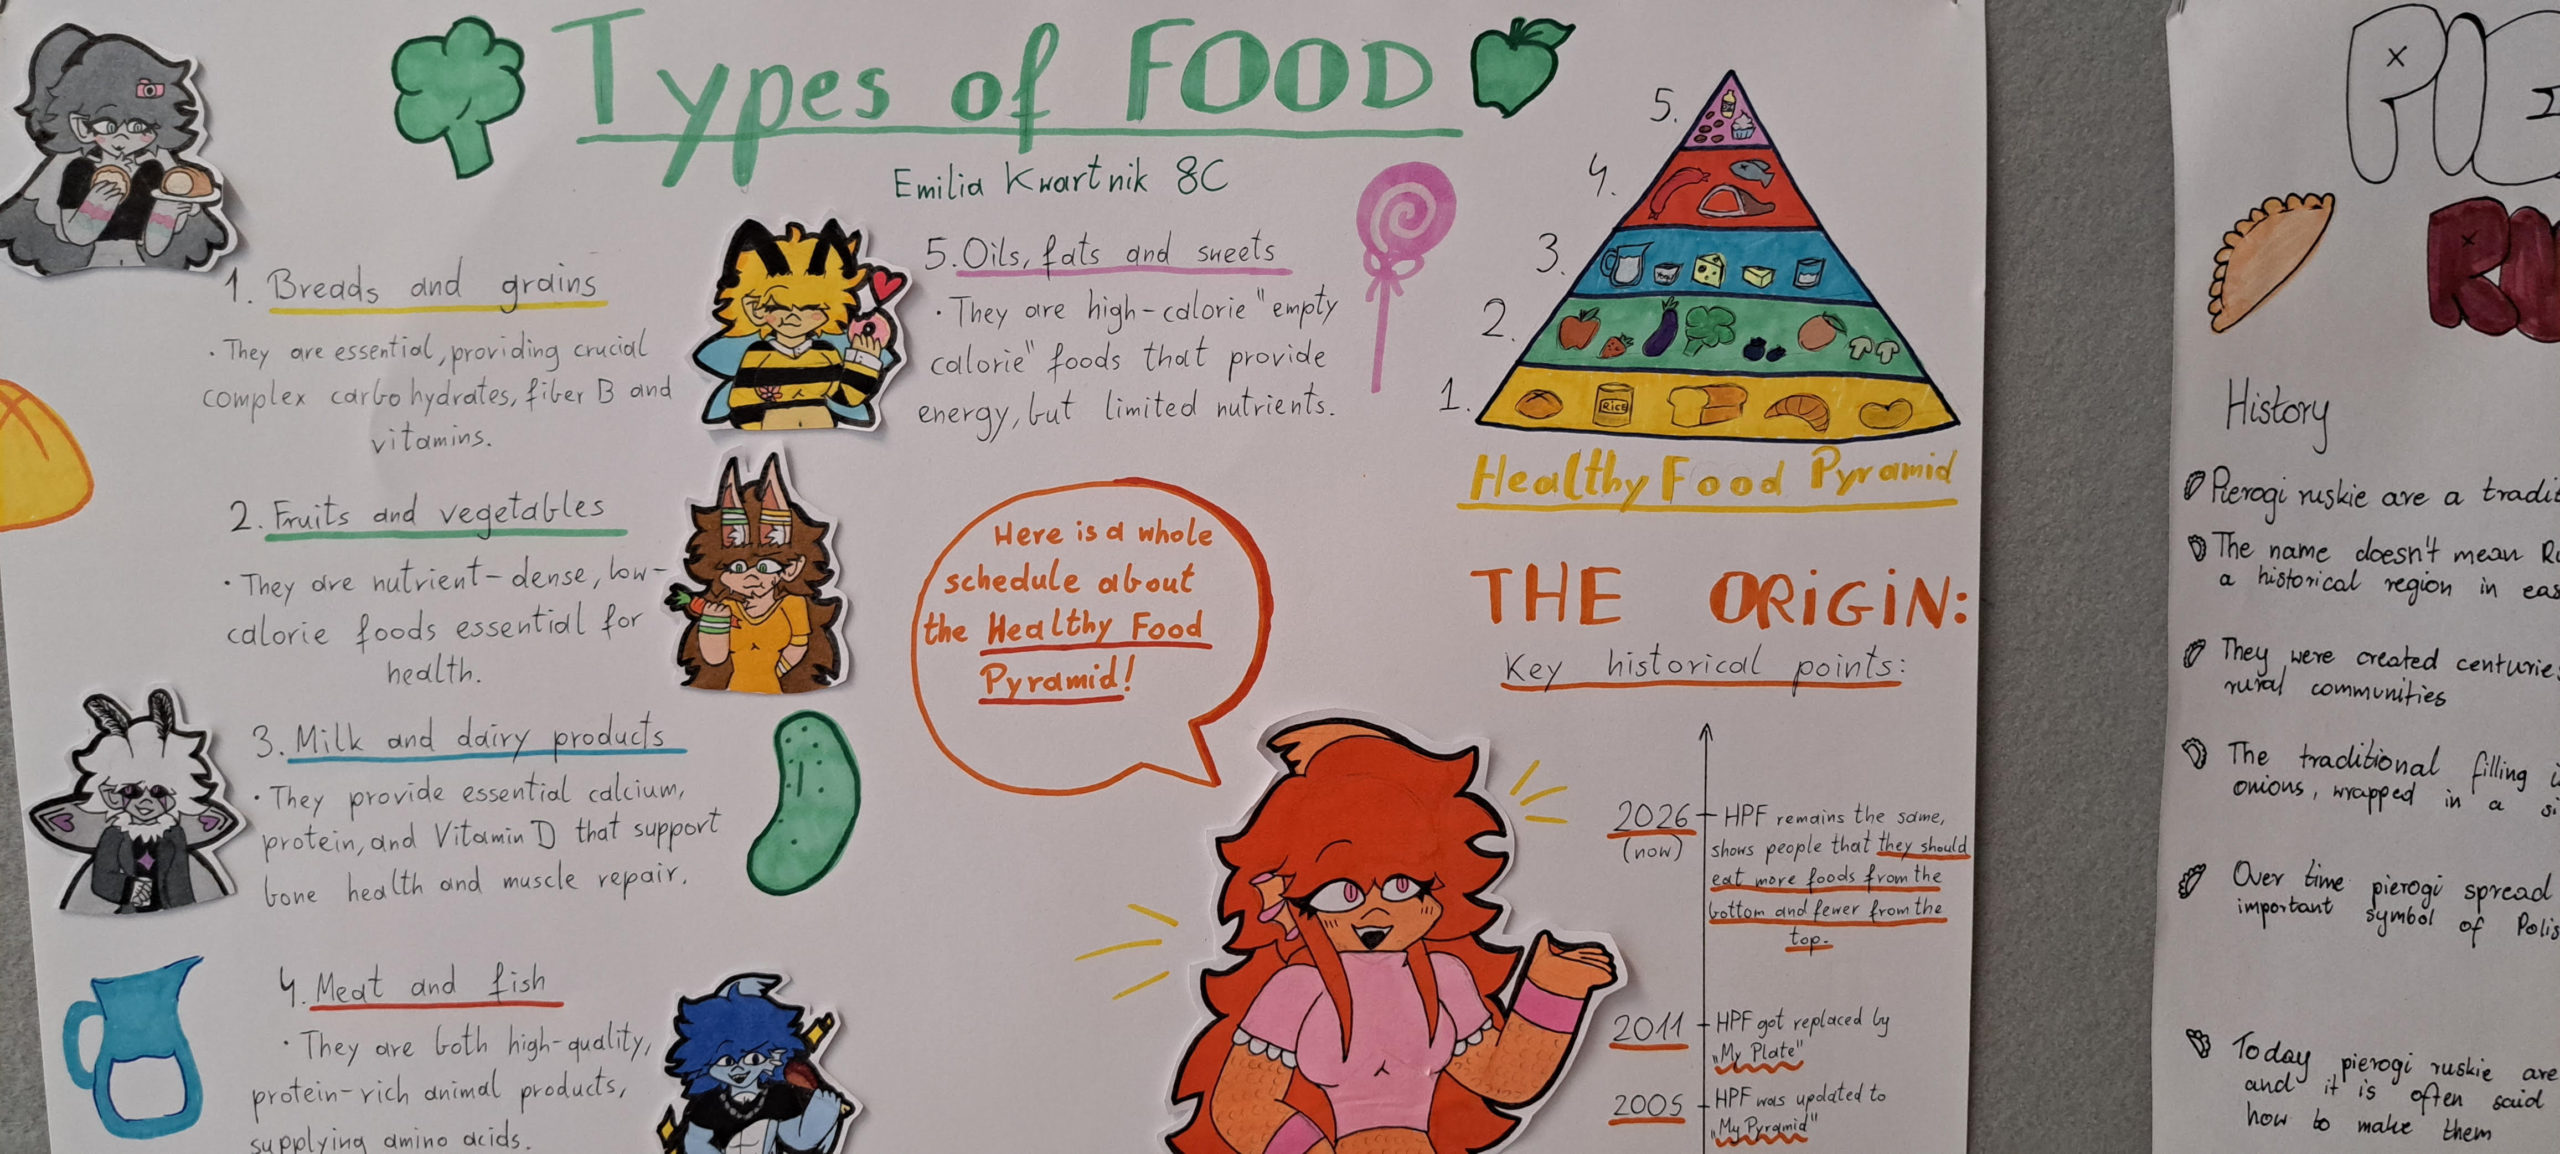 Types of FOOD
Emilia Kwartnik 8C
1. Breads and grains
• They are essential, providing crucial
complex carbohydrates, fiber B and
vitamins.
2. Fruits and vegetables
• They are nutrient-dense, low-
calorie foods essential for
health.
3. Milk and dairy products
• They provide essential calcium,
protein, and Vitamin D that support
bone health and muscle repair.
4. Meat and fish
• They are both high-quality,
protein-rich animal products,
supplying amino acids.
5. Oils, fats and sweets
• They are high-calorie "empty
calorie" foods that provide
energy, but limited nutrients.
Here is a whole
schedule about
the Healthy Food
Pyramid!
5.
4.
3.
2.
1.
RICE
Healthy Food Pyramid
THE ORIGIN:
Key historical points:
2026
(now)
HPF remains the same,
shows people that they should
eat more foods from the
bottom and fewer from the
top.
2011
HPF got replaced by
„My Plate"
2005
HPF was updated to
„My Pyramid"
PIE
RU
History
Pierogi ruskie are a tradi
The name doesn't mean Ru
a historical region in eas
They were created centuries
rural communities
The traditional filling i
onions, wrapped in a si
Over time pierogi spread
important symbol of Polis
Today pierogi ruskie are
and it is often said
how to make them